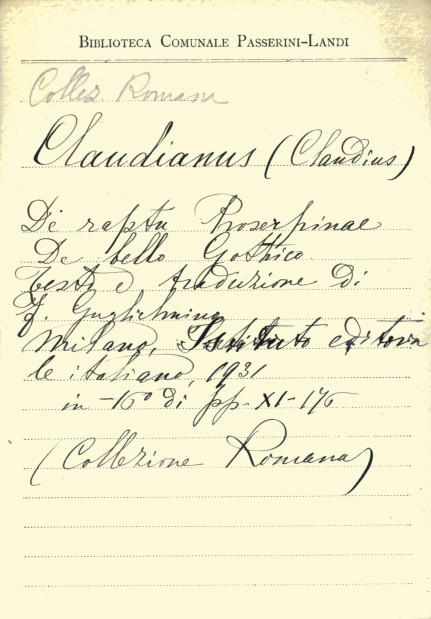 BIBLIOTECA COMUNALE PASSERINI-LANDI
Collez. Romana
Claudianus (Claudius)
De raptu Proserpinae
De bello Gothico.
Testo e traduzione di
F. Guglielmino
Milano, Istituto editoria
le italiano, 1931
in -16° di pp. XI-176
(Collezione Romana)